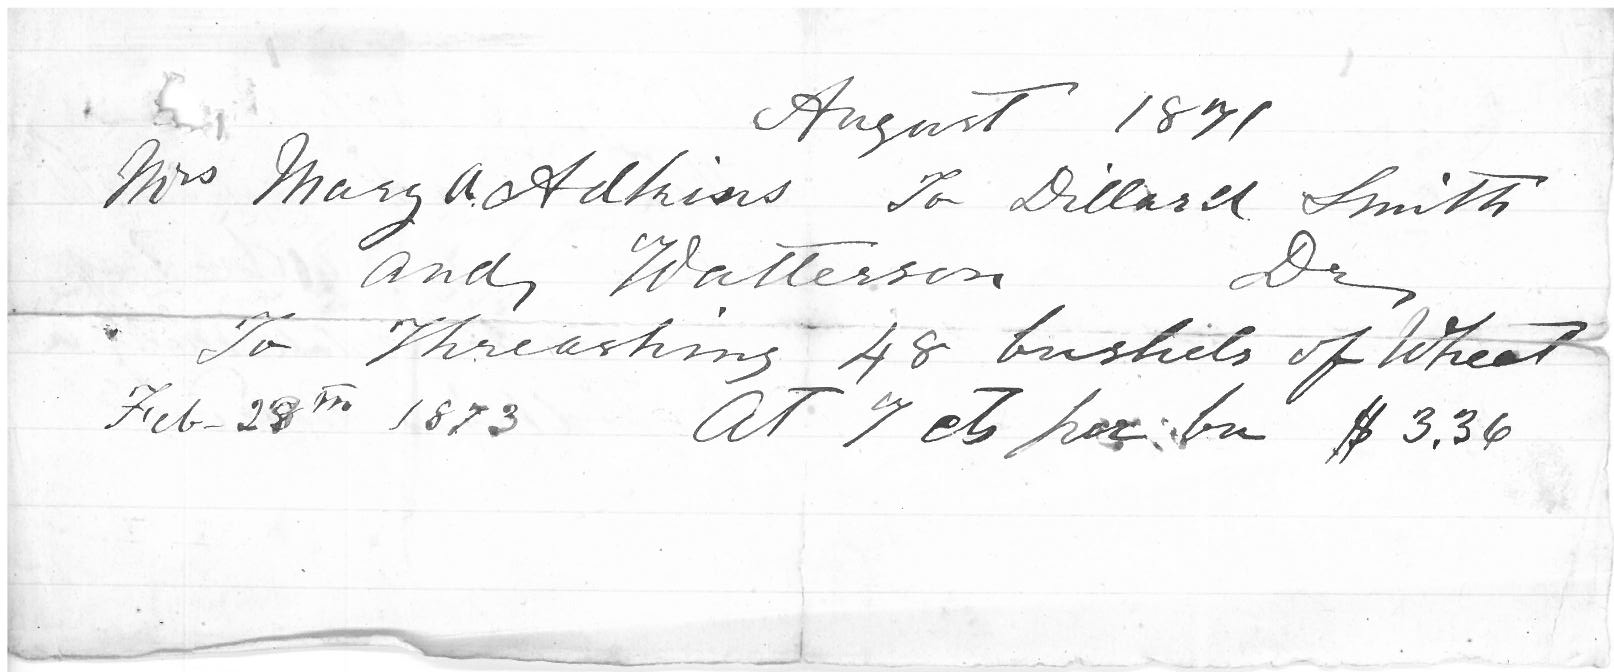 August 1871
Mrs Mary A. Adkins To Dillard Smith
and, Watterson Dr,
To Threashing 48 bushels of Wheat
Feb - 28th 1873 At 7 cts per bu $ 3.36